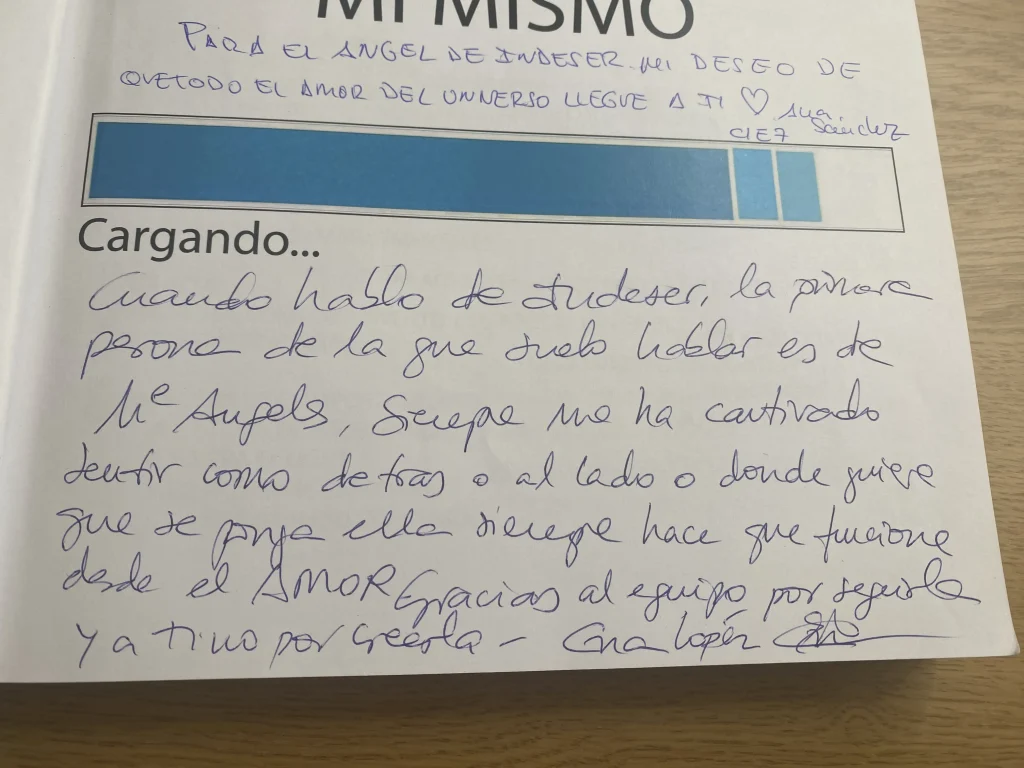 MI MISMO
PARA EL ANGEL DE INDESER. MI DESEO DE
QUE TODO EL AMOR DEL UNIVERSO LLEGUE A TI ♡ Ana
CIE7 Sánchez
Cargando...
Cuando hablo de Indeser, la primera
persona de la que suelo hablar es de
Mª Angels, Siempre me ha cautivado
sentir como detras o al lado o donde quiere
que se ponga ella siempre hace que funcione
desde el AMOR Gracias al equipo por seguirla
Y a Tino por creerla - López